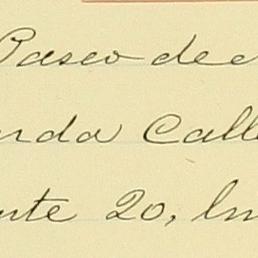 Paseo de
nda Calle
nte 20, In